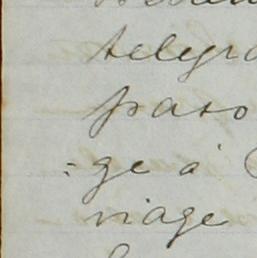 telegra
paso
:ge á
viage